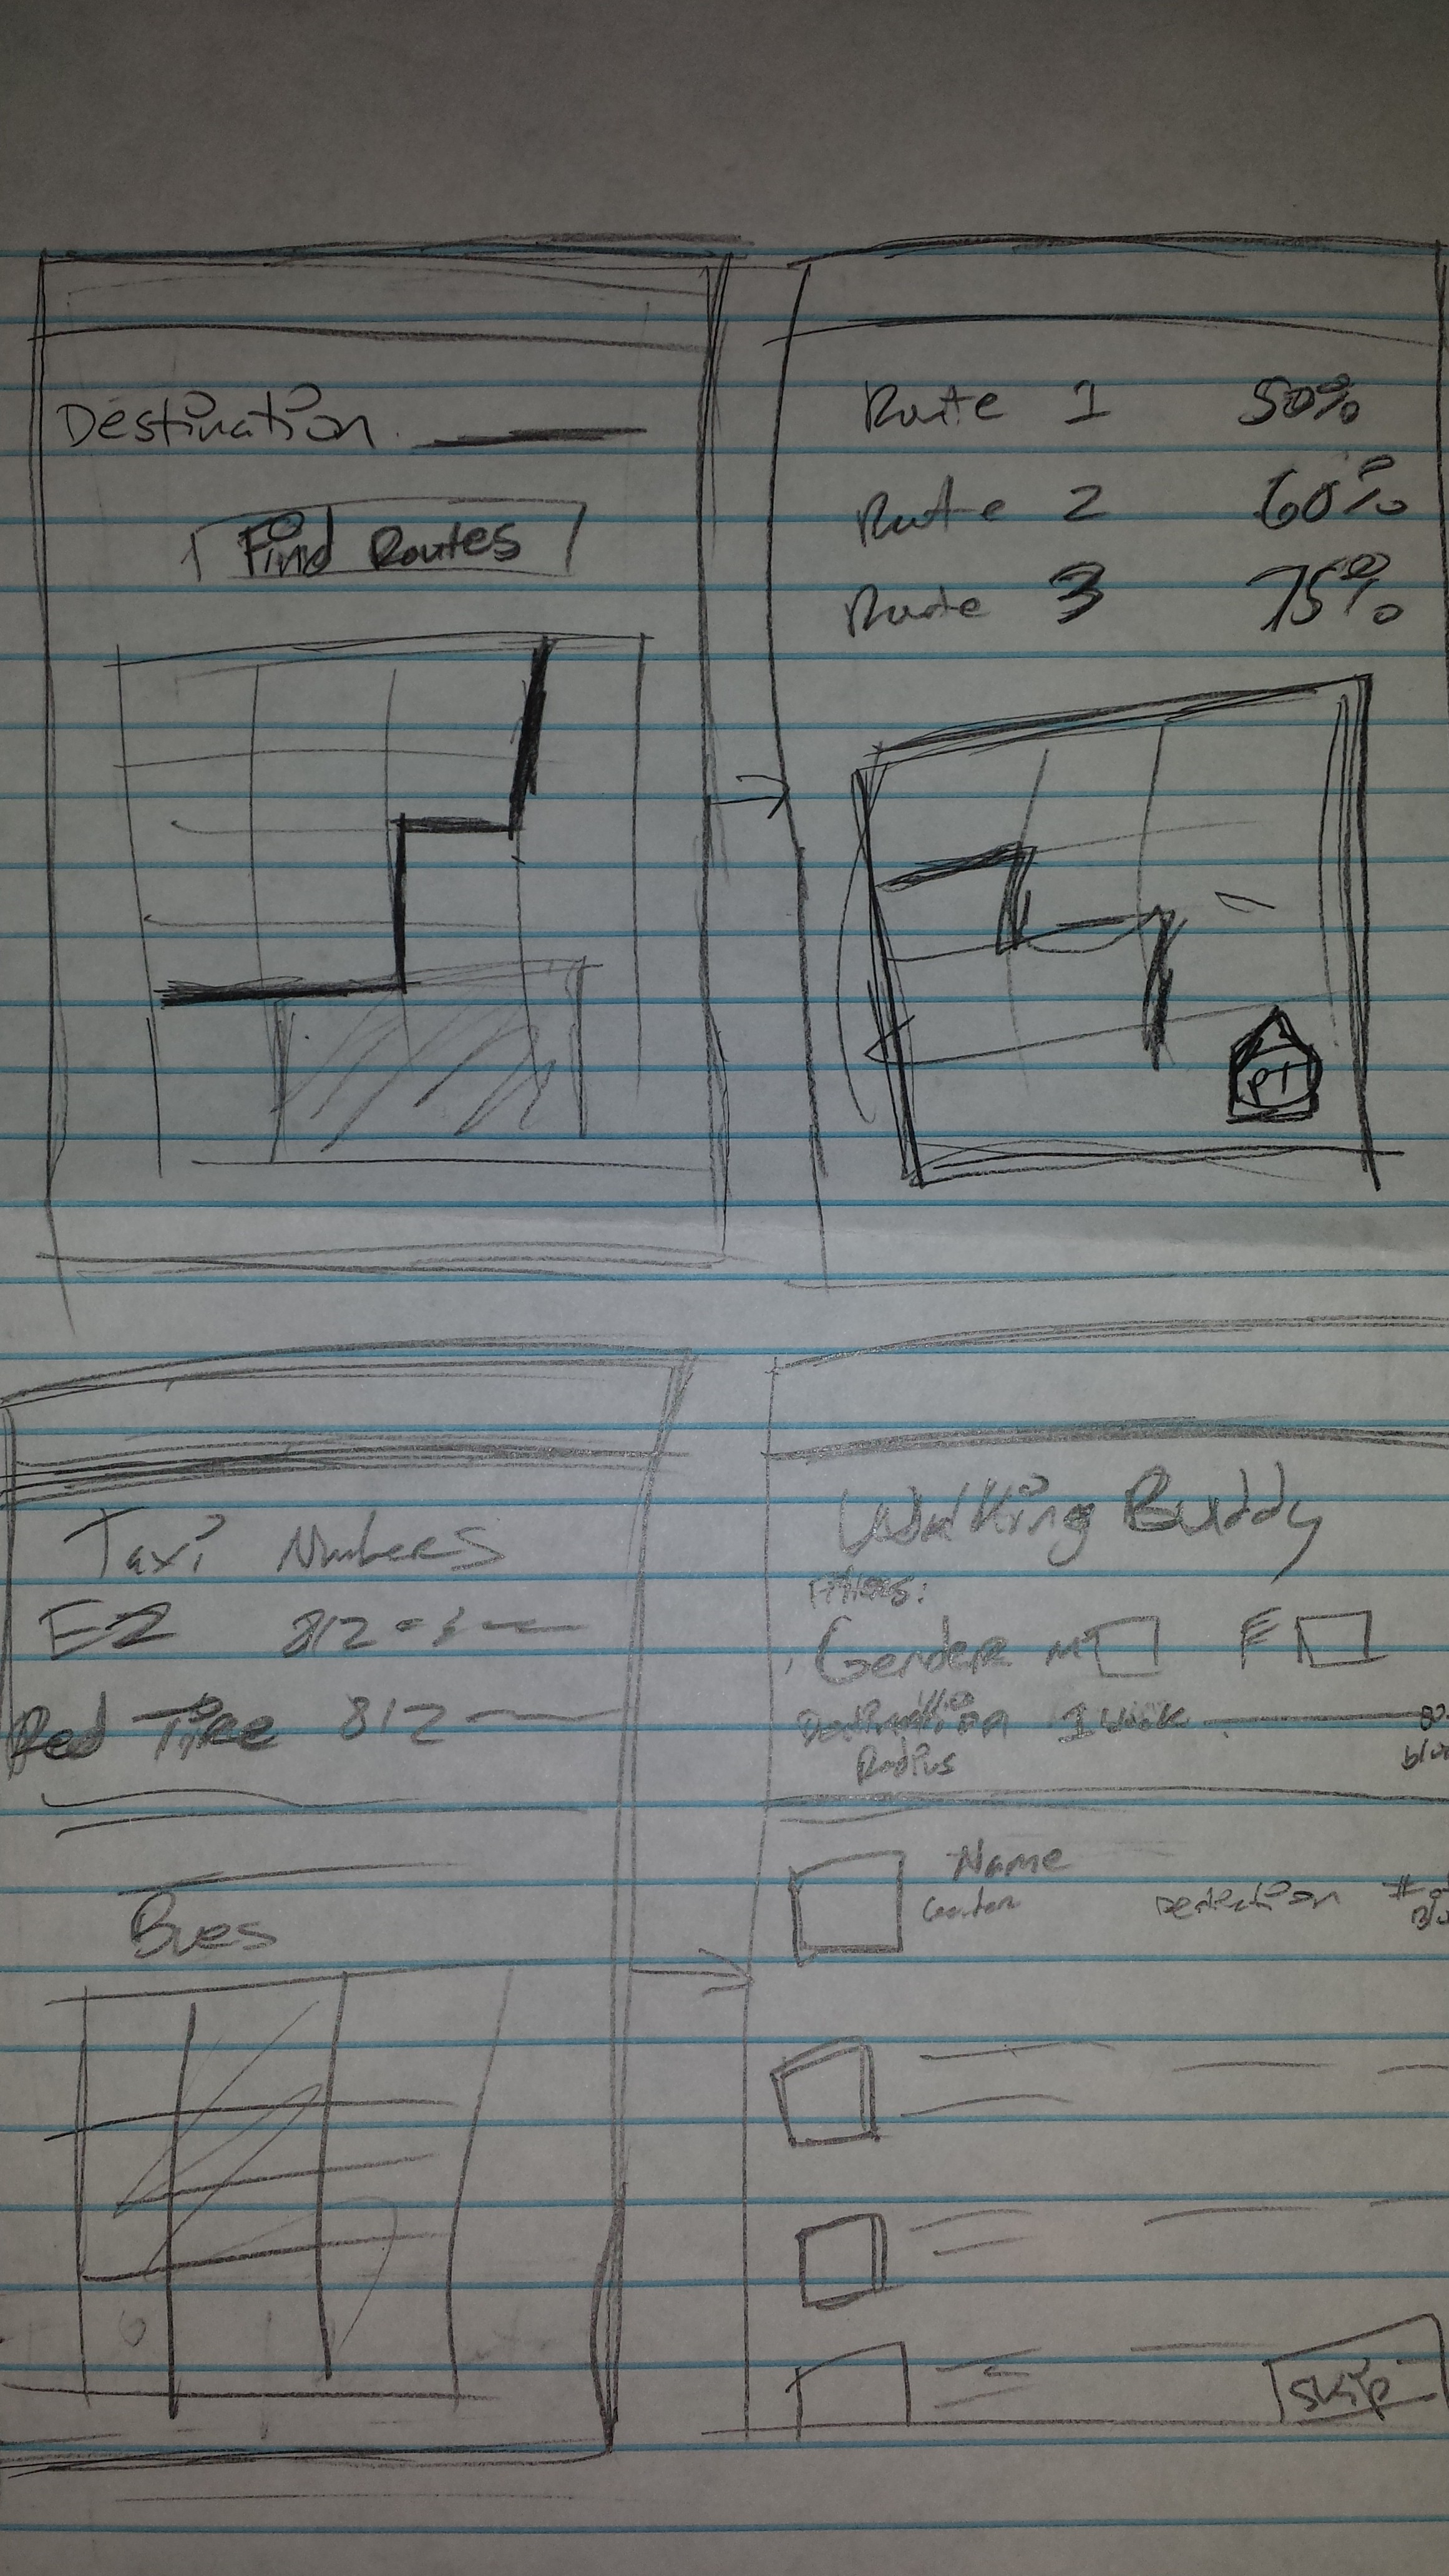 Destination
Find Routes
Route 1 50%
Route 2 60%
Route 3 75%
PT
Taxi Numbers
EZ 812
Red Tire 812
Buses
Walking Buddy
Filters:
Gender M F
Destination
Radius
Name
Gender
#of
Skip